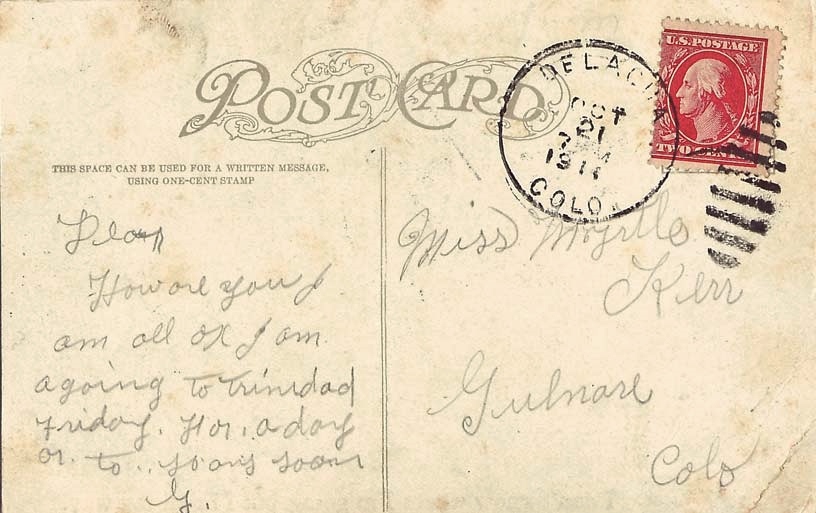 POST CARD
THIS SPACE CAN BE USED FOR A WRITTEN MESSAGE,
USING ONE-CENT STAMP
U.S. POSTAGE
TWO CENTS
DELAGUA
OCT
21
7 AM
1911
COLO.
Dear
How are you I
am all OK I am
agoing to trinidad
Friday. For. a day
or. to.. yours soon
G.
Miss Myrtle
Kerr
Gulnare
Colo